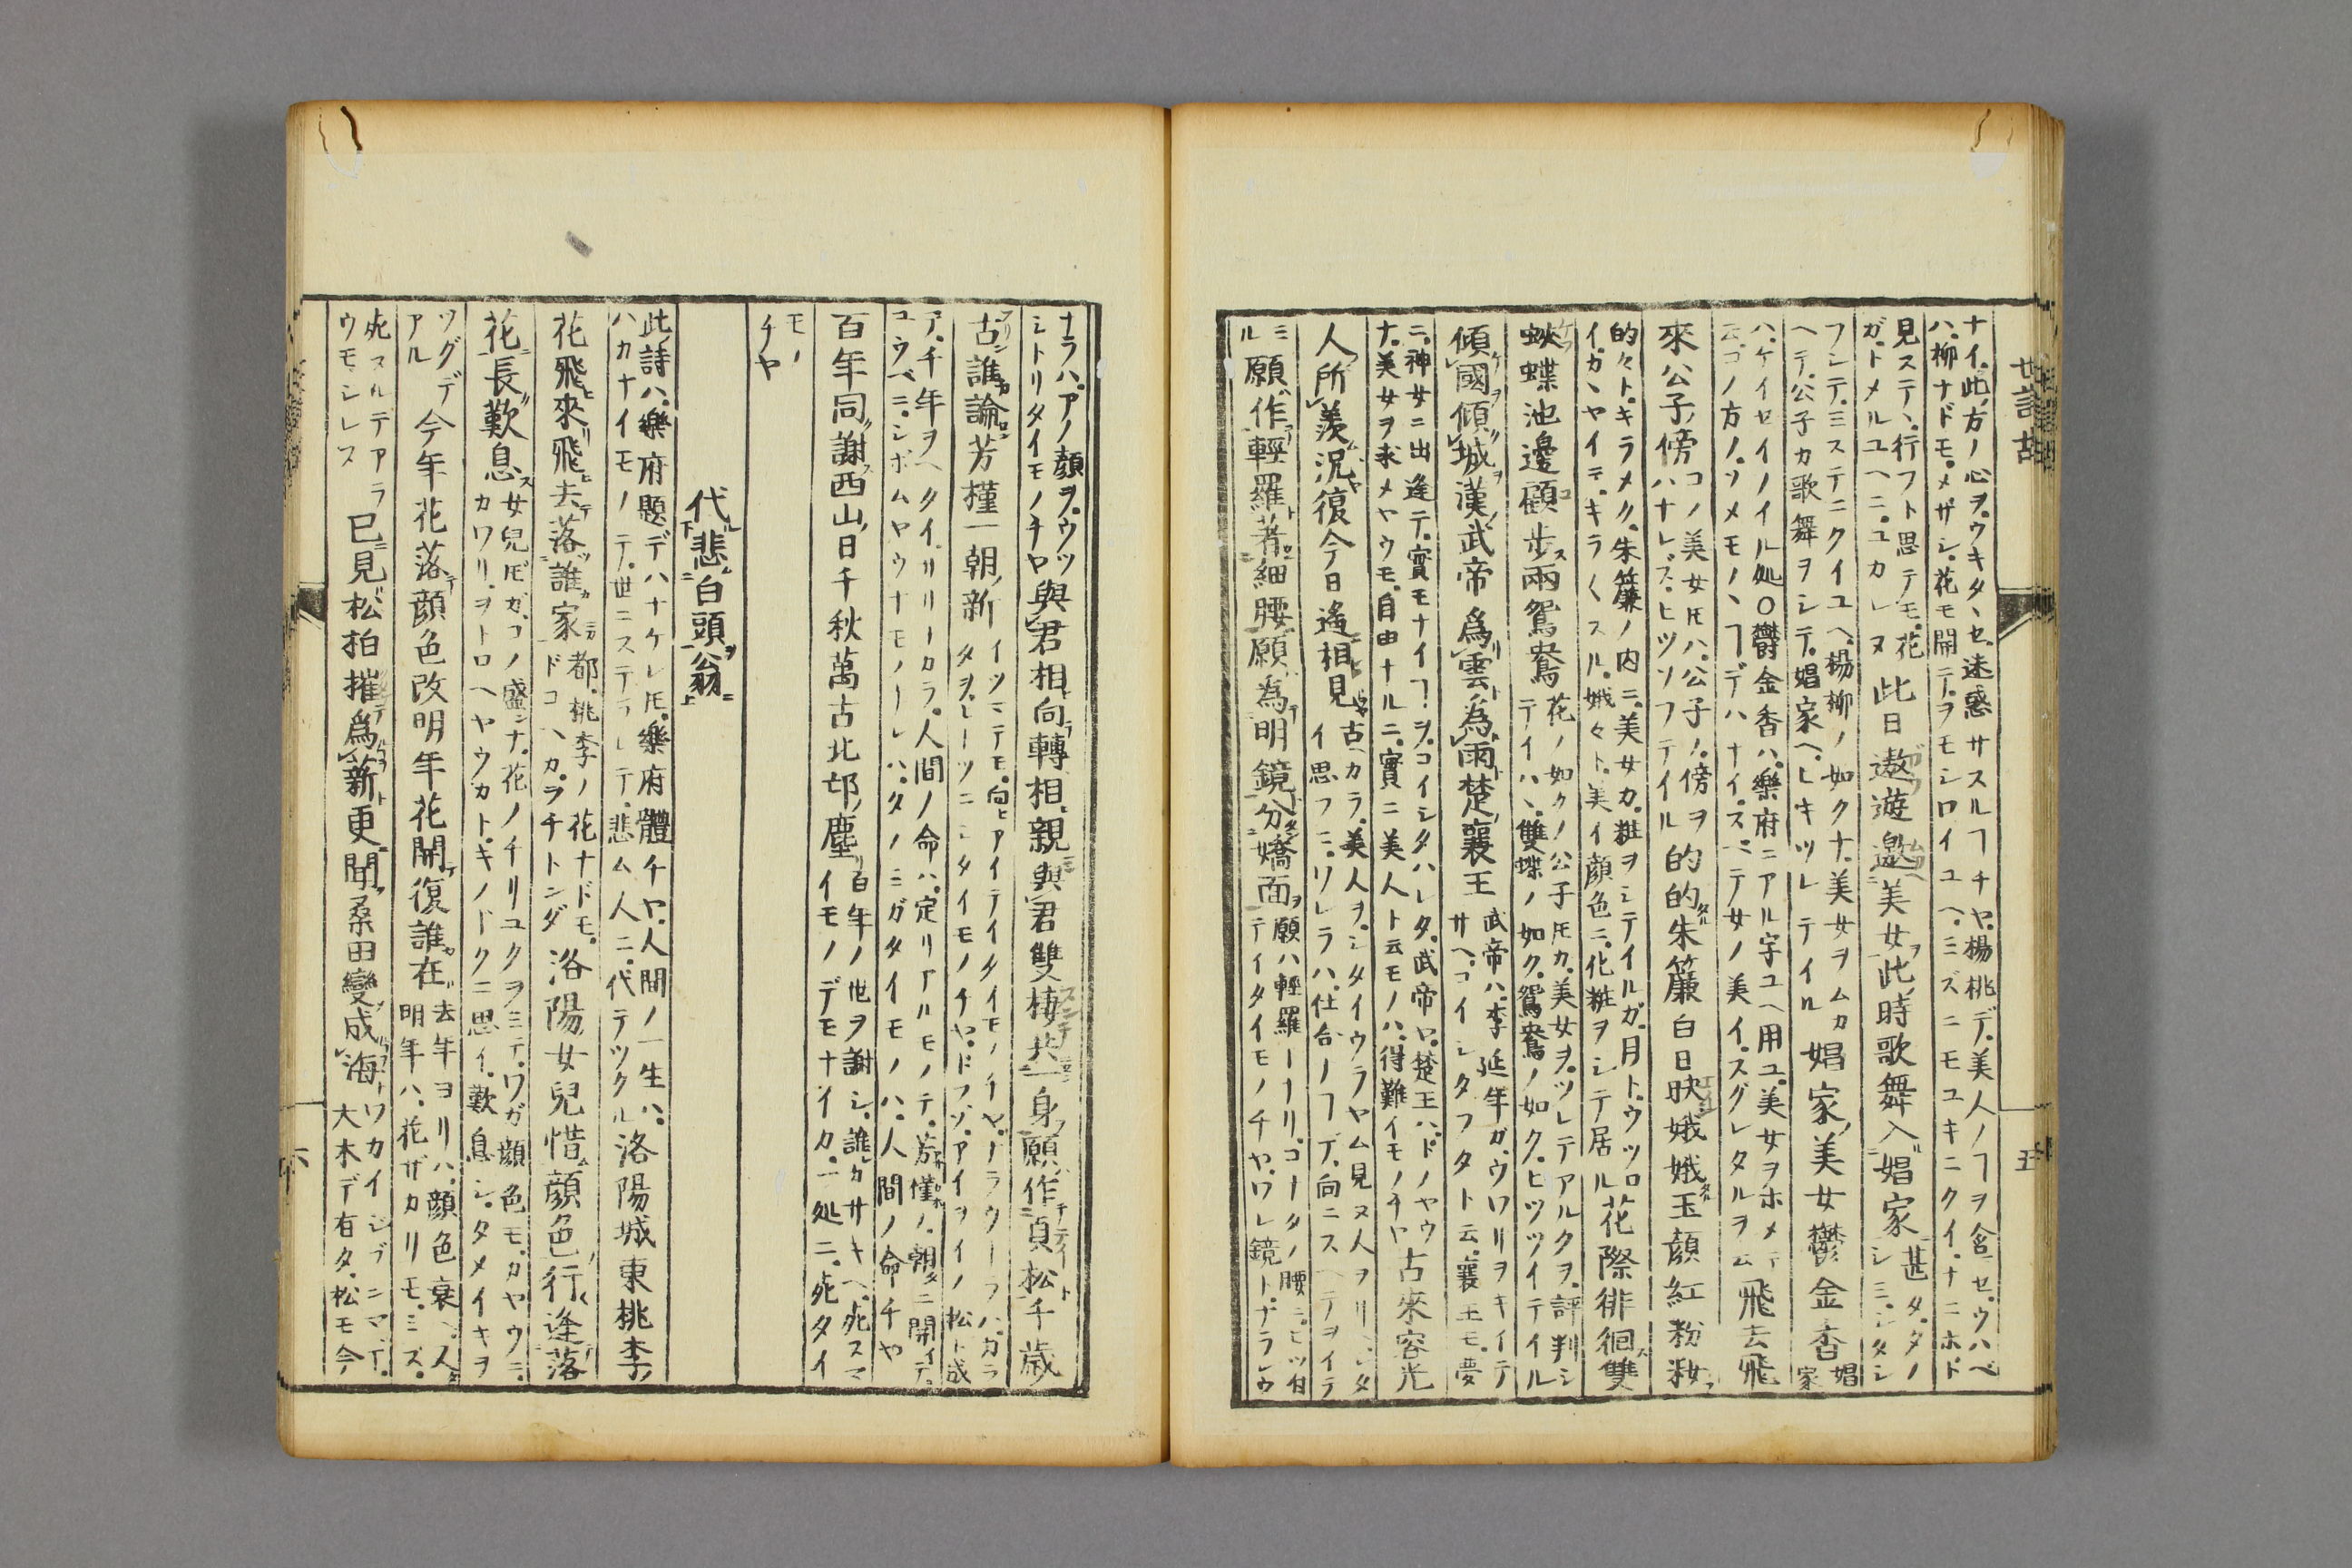 ナイ此方ノ心ヲウキタヽセ迷惑サスルヿチヤ楊桃デ美人ノヿヲ含セウハベ
ハ柳ナドモメザシ花モ開テヲモシロイユヘミズニモユキニクイナニホド
見ステヽ行フト思テモ花
ガトメルユヘニユカレヌ
此日遨遊邀美女此時歌舞入娼家
甚タタノ
シミシタシ
フンテミステニクイユヘ楊柳ノ如クナ美女ヲムカ
ヘテ公子カ歌舞ヲシテ娼家ヘヒキツレテイル
娼家美女鬱金香
娼
家
ハケイセイノイル処〇鬱金香ハ樂府ニアル字ユヘ用ユ美女ヲホメテ
云コノ方ノソメモノヽヿデハナイスベテ女ノ美イスグレタルヲ云
飛去飛
來公子傍
コノ美女𪜈ハ公子ノ傍ヲ
ハナレズヒツソフテイル
的的朱簾白日映娥娥玉顔紅粉粧
的々トキラメク朱簾ノ内ニ美女カ粧ヲシテイルガ月トウツロ
イカヽヤイテキラ〱スル娥々ト美イ顔色ニ化粧ヲシテ居ル
花際徘徊雙
蛺蝶池邊顧歩兩鴛鴦
花ノ如クノ公子𪜈カ美女ヲツレテアルクヲ評判シ
テイハヽ雙蝶ノ如ク鴛鴦ノ如クヒツツイテイル
傾國傾城漢武帝爲雲爲雨楚襄王
武帝ハ李延年ガウワリヲキイテ
サヘコイシタフタト云襄王モ夢
ニ神女ニ出逢テ實モナイヿヲコイシタハレタ武帝ロ楚王ハドノヤウ
ナ美女ヲ求メヤウモ自由ナルニ實ニ美人ト云モノハ得難イモノチヤ
古來容光
人所羨況復今日遙相見
古カラ美人ヲシタイウラヤム見ヌ人ヲリヘシタ
イ思フニソレラハ仕合ノヿデ向ニスヘテヲイラ
ミ
ル
願作輕羅著細腰願為明鏡分嬌面
願ハ輕羅ーナリコナタノ腰ニヒツ付
テイタイモノチヤワレ鏡トナラレウ
ナラハアノ顔ヲウツ
シトリタイモノチヤ
與君相向轉相親與君雙棲共一身願作貞松千歳
古誰論芳槿一朝新
イツニテモ向ヒアイテイタイモノチヤナラウーラハカラ
タヲレーツニシタイモノチヤドフゾアイヲイノ松ト成
ア千年ヲヘタイリリーカラ人間ノ命ハ定リアルモノテ芳槿ノ朝ニ開イテ
ユウベニシボムヤウナモノーレハタノミガタイモノハ人間ノ命チヤ
百年同謝西山日千秋萬古北邙塵
百年ノ世ヲ謝シ誰カサキヘ死スマ
イモノデモナイカ一処ニ死タイ
モノ
チヤ
代悲白頭翁
此詩ハ樂府題デハナケレ𪜈樂府體チヤ人間ノ一生ハ
ハカナイモノテ世ニステラレテ悲ム人ニ代テツクル
洛陽城東桃李
花飛來飛去落誰家
都桃李ノ花ナドモ
ドコヘカヲチトンダ
洛陽女兒惜顔色行逢落
花長歎息
女兒𪜈ガコノ盛ンナ花ノチリユクヲミテワガ顔色モカヤウニ
カワリヲトロヘヤウカトキノドクニ思イ歎息シタメイキヲ
ツグデ
アル
今年花落顔色改明年花開復誰在
去年ヨリハ顔色衰ヘ人
明年ハ花ザカリモミズ
死ヌルデアラ
ウモシレス
已見松柏摧爲薪更聞桑田變成海
ワカイシブニマデ
大木デ有タ松モ今
五
六